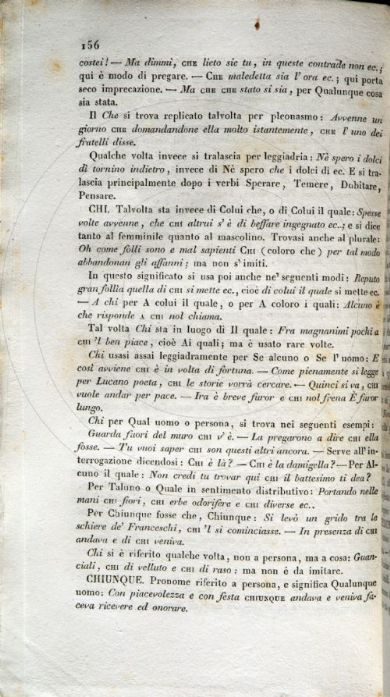 156
costei! — Ma dimmi, CHE lieto sie tu, in queste contrade non ec.;
qui è modo di pregare. — CHE maledetta sia l'ora ec.; qui porta
seco imprecazione. — Ma CHE CHE stato si sia, per Qualunque cosa
sia stata.
Il Che si trova replicato talvolta per pleonasmo: Avvenne un
giorno CHE domandandone ella molto istantemente, CHE l'uno dei
fratelli disse.
Qualche volta invece si tralascia per leggiadria: Nè spero i dolci
dì tornino indietro, invece di Nè spero che i dolci dì ec. E si tra-
lascia principalmente dopo i verbi Sperare, Temere, Dobitare,
Pensare.
CHI. Talvolta sta invece di Colui che, o di Colui il quale: Spesse
volte avvenne, che CHI altrui s'è di beffare ingegnato ec..; e si dice
tanto al femminile quanto al mascolino. Trovasi anche al plurale:
Oh come folli sono e mal sapienti CHI (coloro che) per tal modo
abbandonan gli affanni; ma non s'imiti.
In questo significato si usa poi anche ne' seguenti modi: Reputo
gran follìa quella di CHI si mette ec., cioè di colui il quale si mette ec.
— A chi per A colui il quale, o per A coloro i quali: Alcuno è
che risponde A CHI nol chiama.
Tal volta Chi sta in luogo di Il quale: Fra magnanimi pochi a
CHI 'l ben piace, cioè Ai quali; ma è usato rare volte.
Chi usasi assai leggiadramente per Se alcuno o Se l'uomo: E
così avviene CHI è in volta di fortuna. — Come pienamente si legge
per Lucano poeta, CHI le storie vorrà cercare. — Quinci si va, CHI
vuole andar per pace. — Ira è breve furor e CHI nol frena È furor
lungo.
Chi per Qual uomo o persona, si trova nei seguenti esempi:
Guarda fuori del muro CHI v'è. — La pregarono a dire CHI ella
fosse. — Tu vuoi saper CHI son questi altri ancora. — Serve all'in-
terrogazione dicendosi: CHI è là? — CHI è la damigella? — Per Al-
cuno il quale: Non credi tu trovar quì CHI il battesimo ti dea?
Per Taluno o Quale in sentimento distributivo: Portando nelle
mani CHI fiori, CHI erbe odorifere e CHI diverse ec..
Per Chiunque fosse che, Chiunque: Si levò un grido tra la
schiere de' Franceschi, CHI 'l si cominciasse. — In presenza di CHI
andava e di CHI veniva.
Chi si è riferito qualche volta, non a persona, ma a cosa: Guan-
ciali, CHI di velluto e CHI di raso: ma non è da imitare.
CHIUNQUE. Pronome riferito a persona, e significa Qualunque
uomo: Con piacevolezza e con festa CHIUNQUE andava e veniva fa-
ceva ricevere ed onorare.